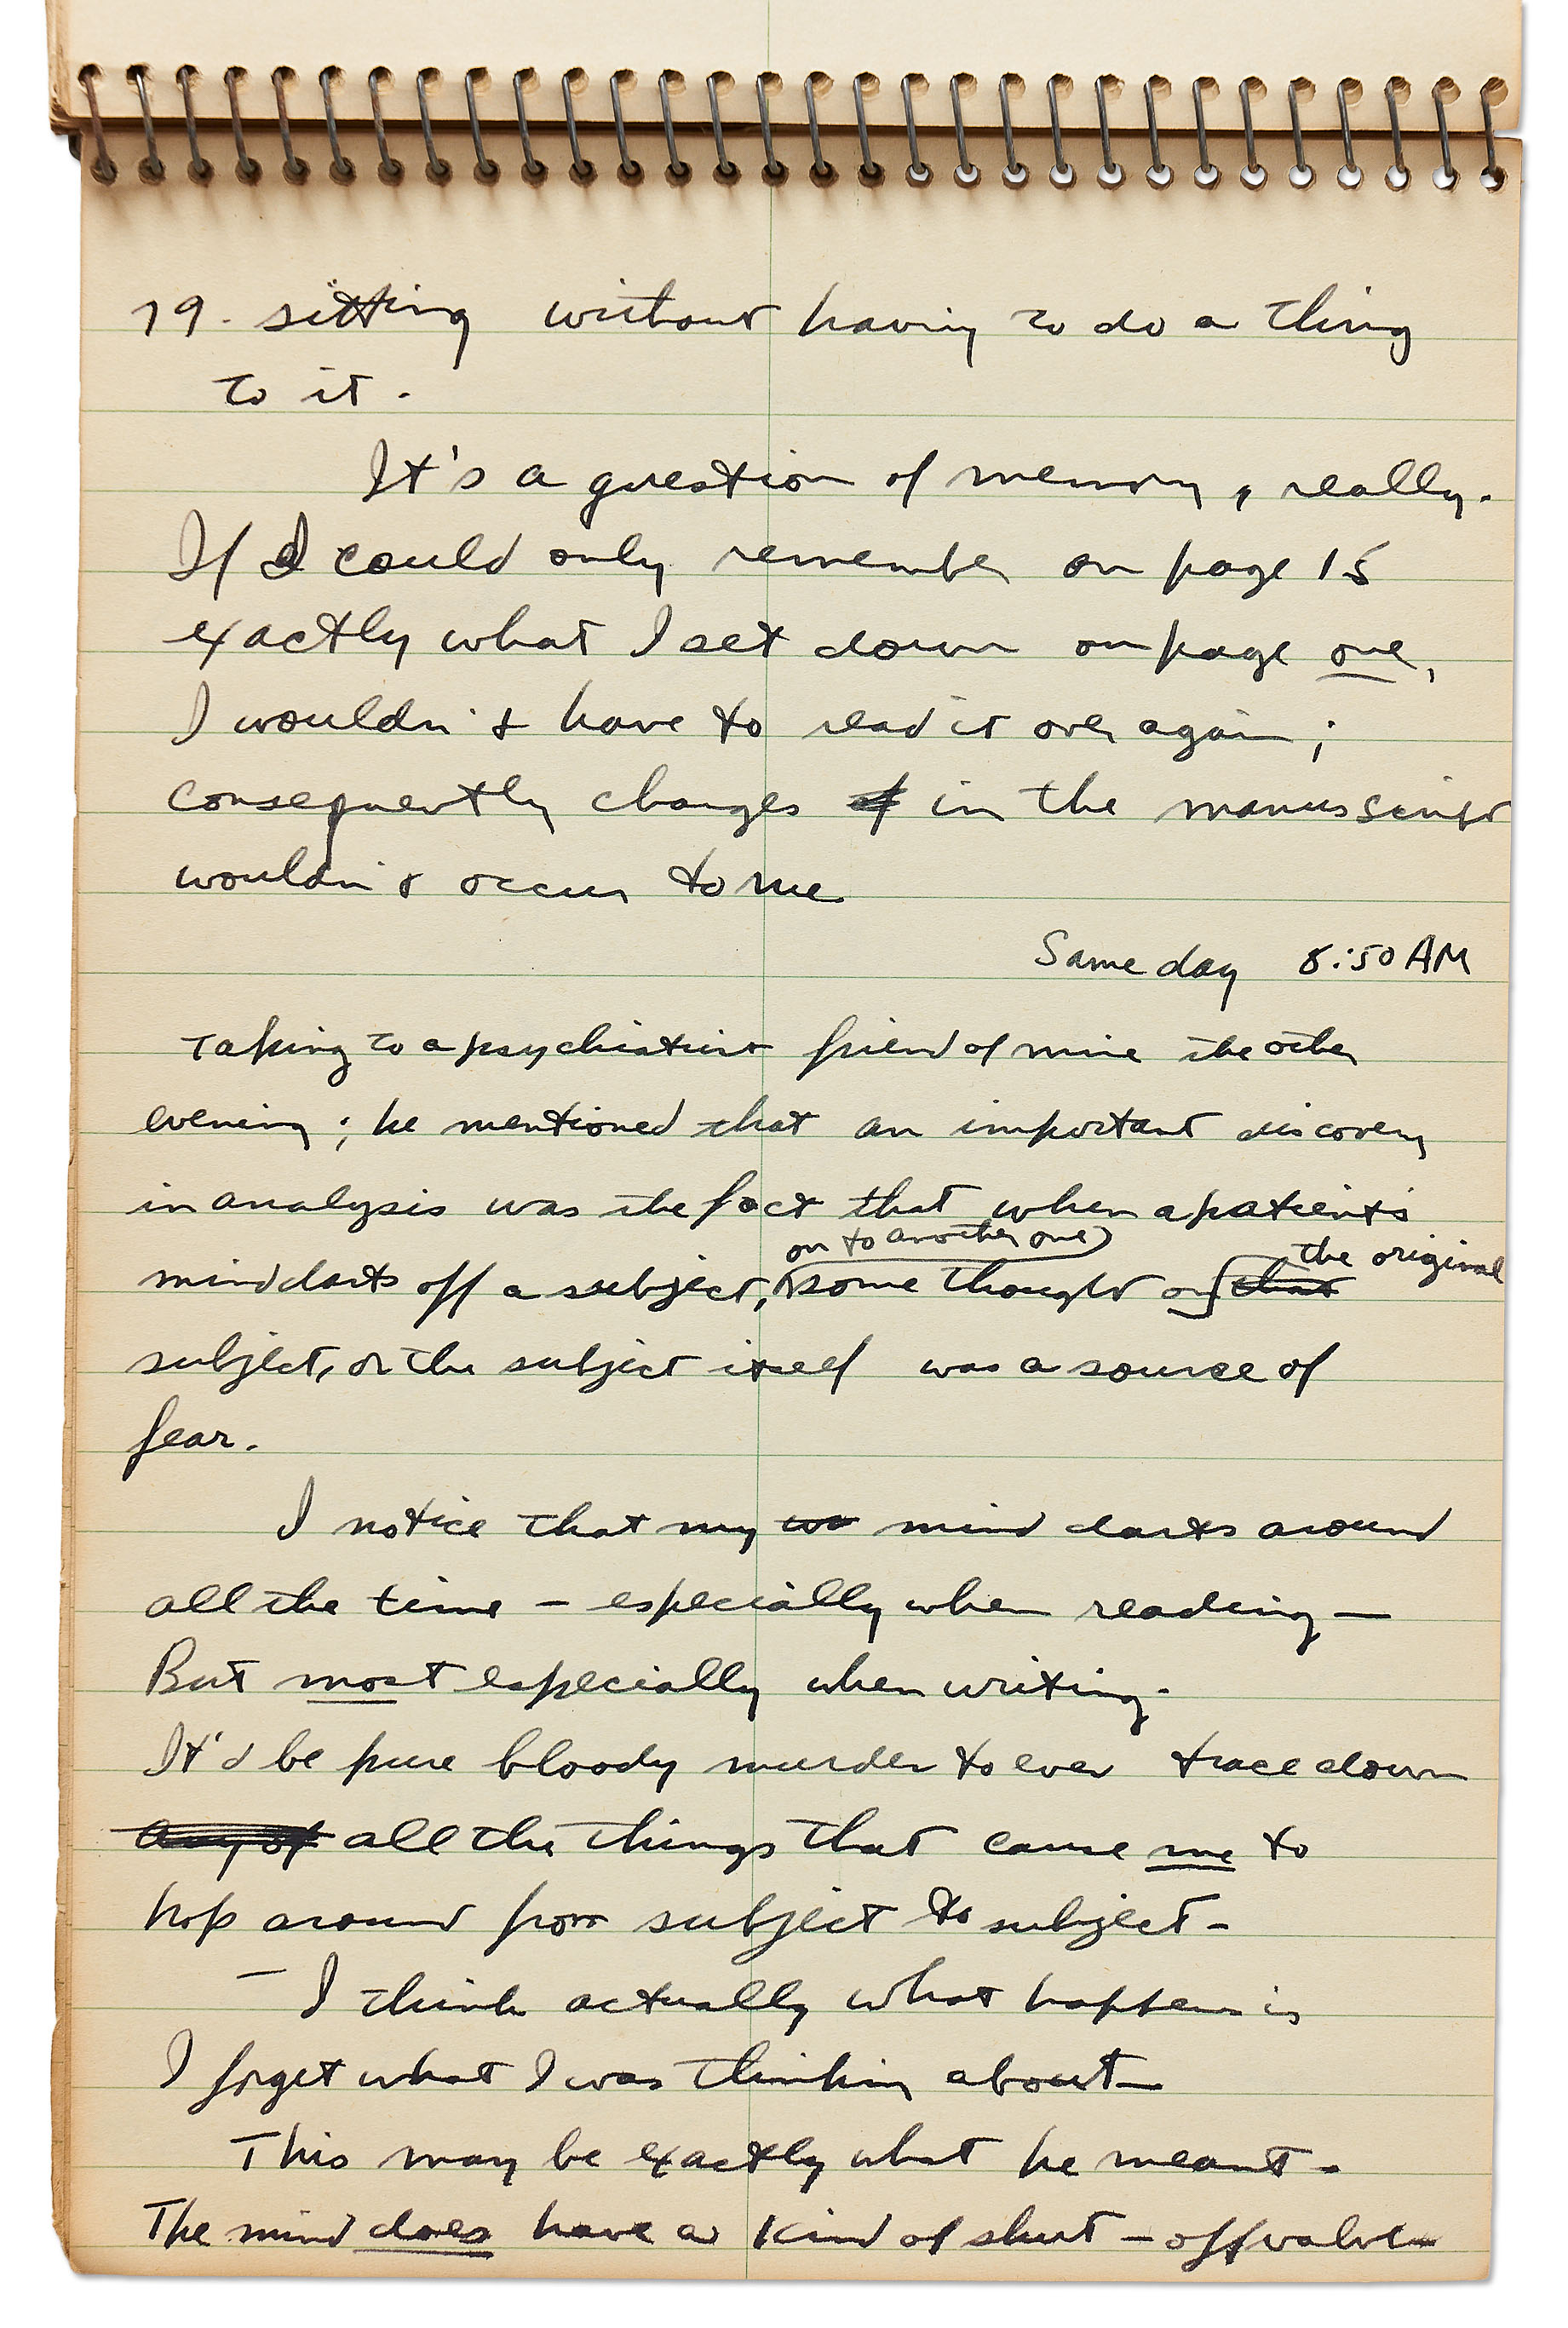 19. sitting without having to do a thing
to it.
It's a question of memory, really.
If I could only remember on page 15
exactly what I set down on page one,
I wouldn't have to read it over again;
consequently changes of in the manusscript
wouldn't occur to me
Same day 8:50 AM
Taking to a psychiatrist friend of mine the other
evening; he mentioned that an important discovery
in analysis was the fact that when a patient's
on to another one
the original
mind darts off a subject, some thought on that
subject, or the subject itself was a source of
fear.
I notice that my wo mind darts around
all the time – especially when reading –
But most especially when writing.
It'd be pure bloody murder to ever trace down
any of all the things that cause me to
hop around from subject to subject –
– I think actually what happens is
I forget what I was thinking about –
This may be exactly what he meant.
The mind does have a kind of shut-off valve –